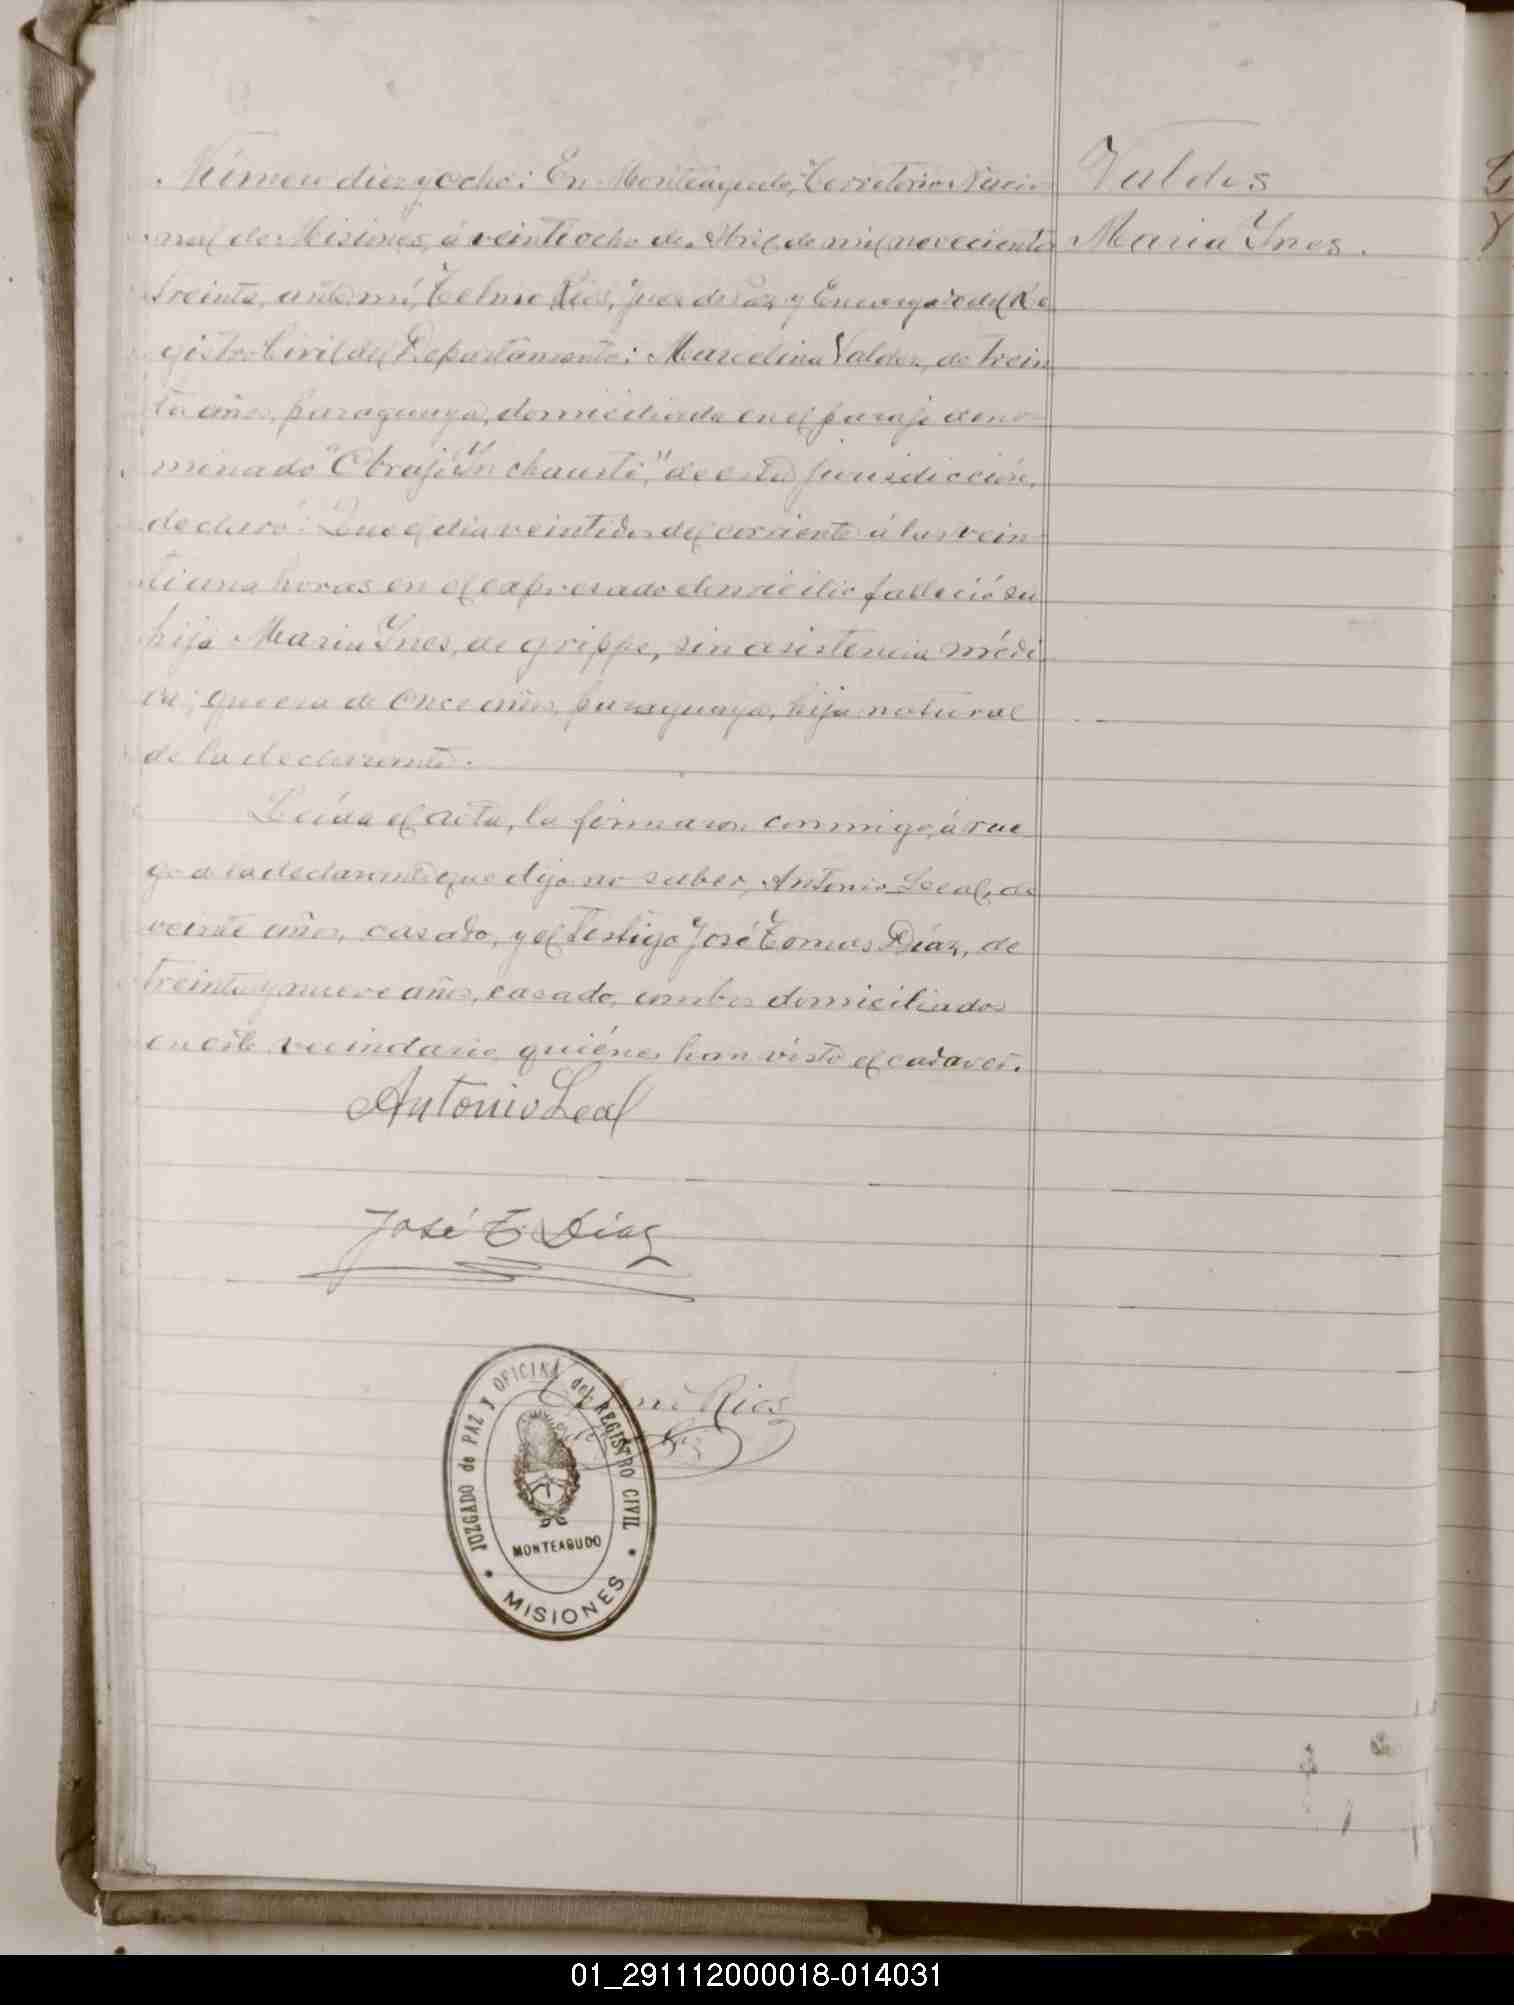 Número diez y ocho: En Monteagudo, Territorio Nacio-
nal de Misiones, á veintiocho de Abril de mil novecientos
treinta, ante mí, Telmo Rios, Juez de Paz y Encargado del Re
gistro Civil del Departamento: Marcelina Valdez, de trein
ta años, paraguaya, domiciliada en el paraje deno-
minado "Obraje Inchausti," de esta jurisdicción,
declaró: Que el dia veintidos del corriente á las vein-
tiuna horas en el expresado domicilio falleció su
hija Maria Ines, de grippe, sin asistencia médi-
ca; que era de once años, paraguaya, hija natural
de la declarante.
Leída el acta, la firmaron conmigo, á rue
go a la declarante que dijo no saber, Antonio Leal, de
veinte años, casado, y el testigo José Tomas Díaz, de
treinta y nueve años, casado, ambos domiciliados
en este vecindario quiénes han visto el cadaver.
Valdes
Maria Ines.
Antonio Leal
José T. Díaz
Telmo Rios
JUZGADO de PAZ y OFICINA del REGISTRO CIVIL
MONTEAGUDO
• MISIONES •
01_291112000018-014031